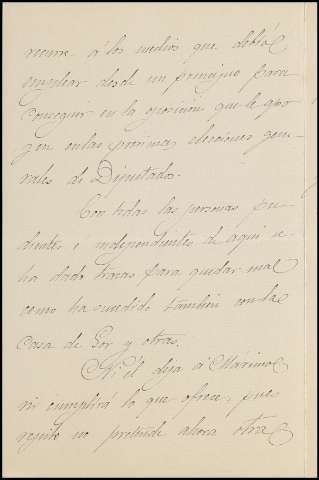 recurre á los medios que debió
emplear desde un principio para
conseguir en la oposicion que le apo-
yen en las proximas elecciones gene-
rales de Diputados.
Con todas las personas pu-
dientes e independientes de aqui se
ha dado trazas para quedar mal
como ha sucedido tambien con la
Casa de Gor y otras.
Ni él deja á Marino
ni cumplirá lo que ofrece, pues
repito no pretende ahora otra